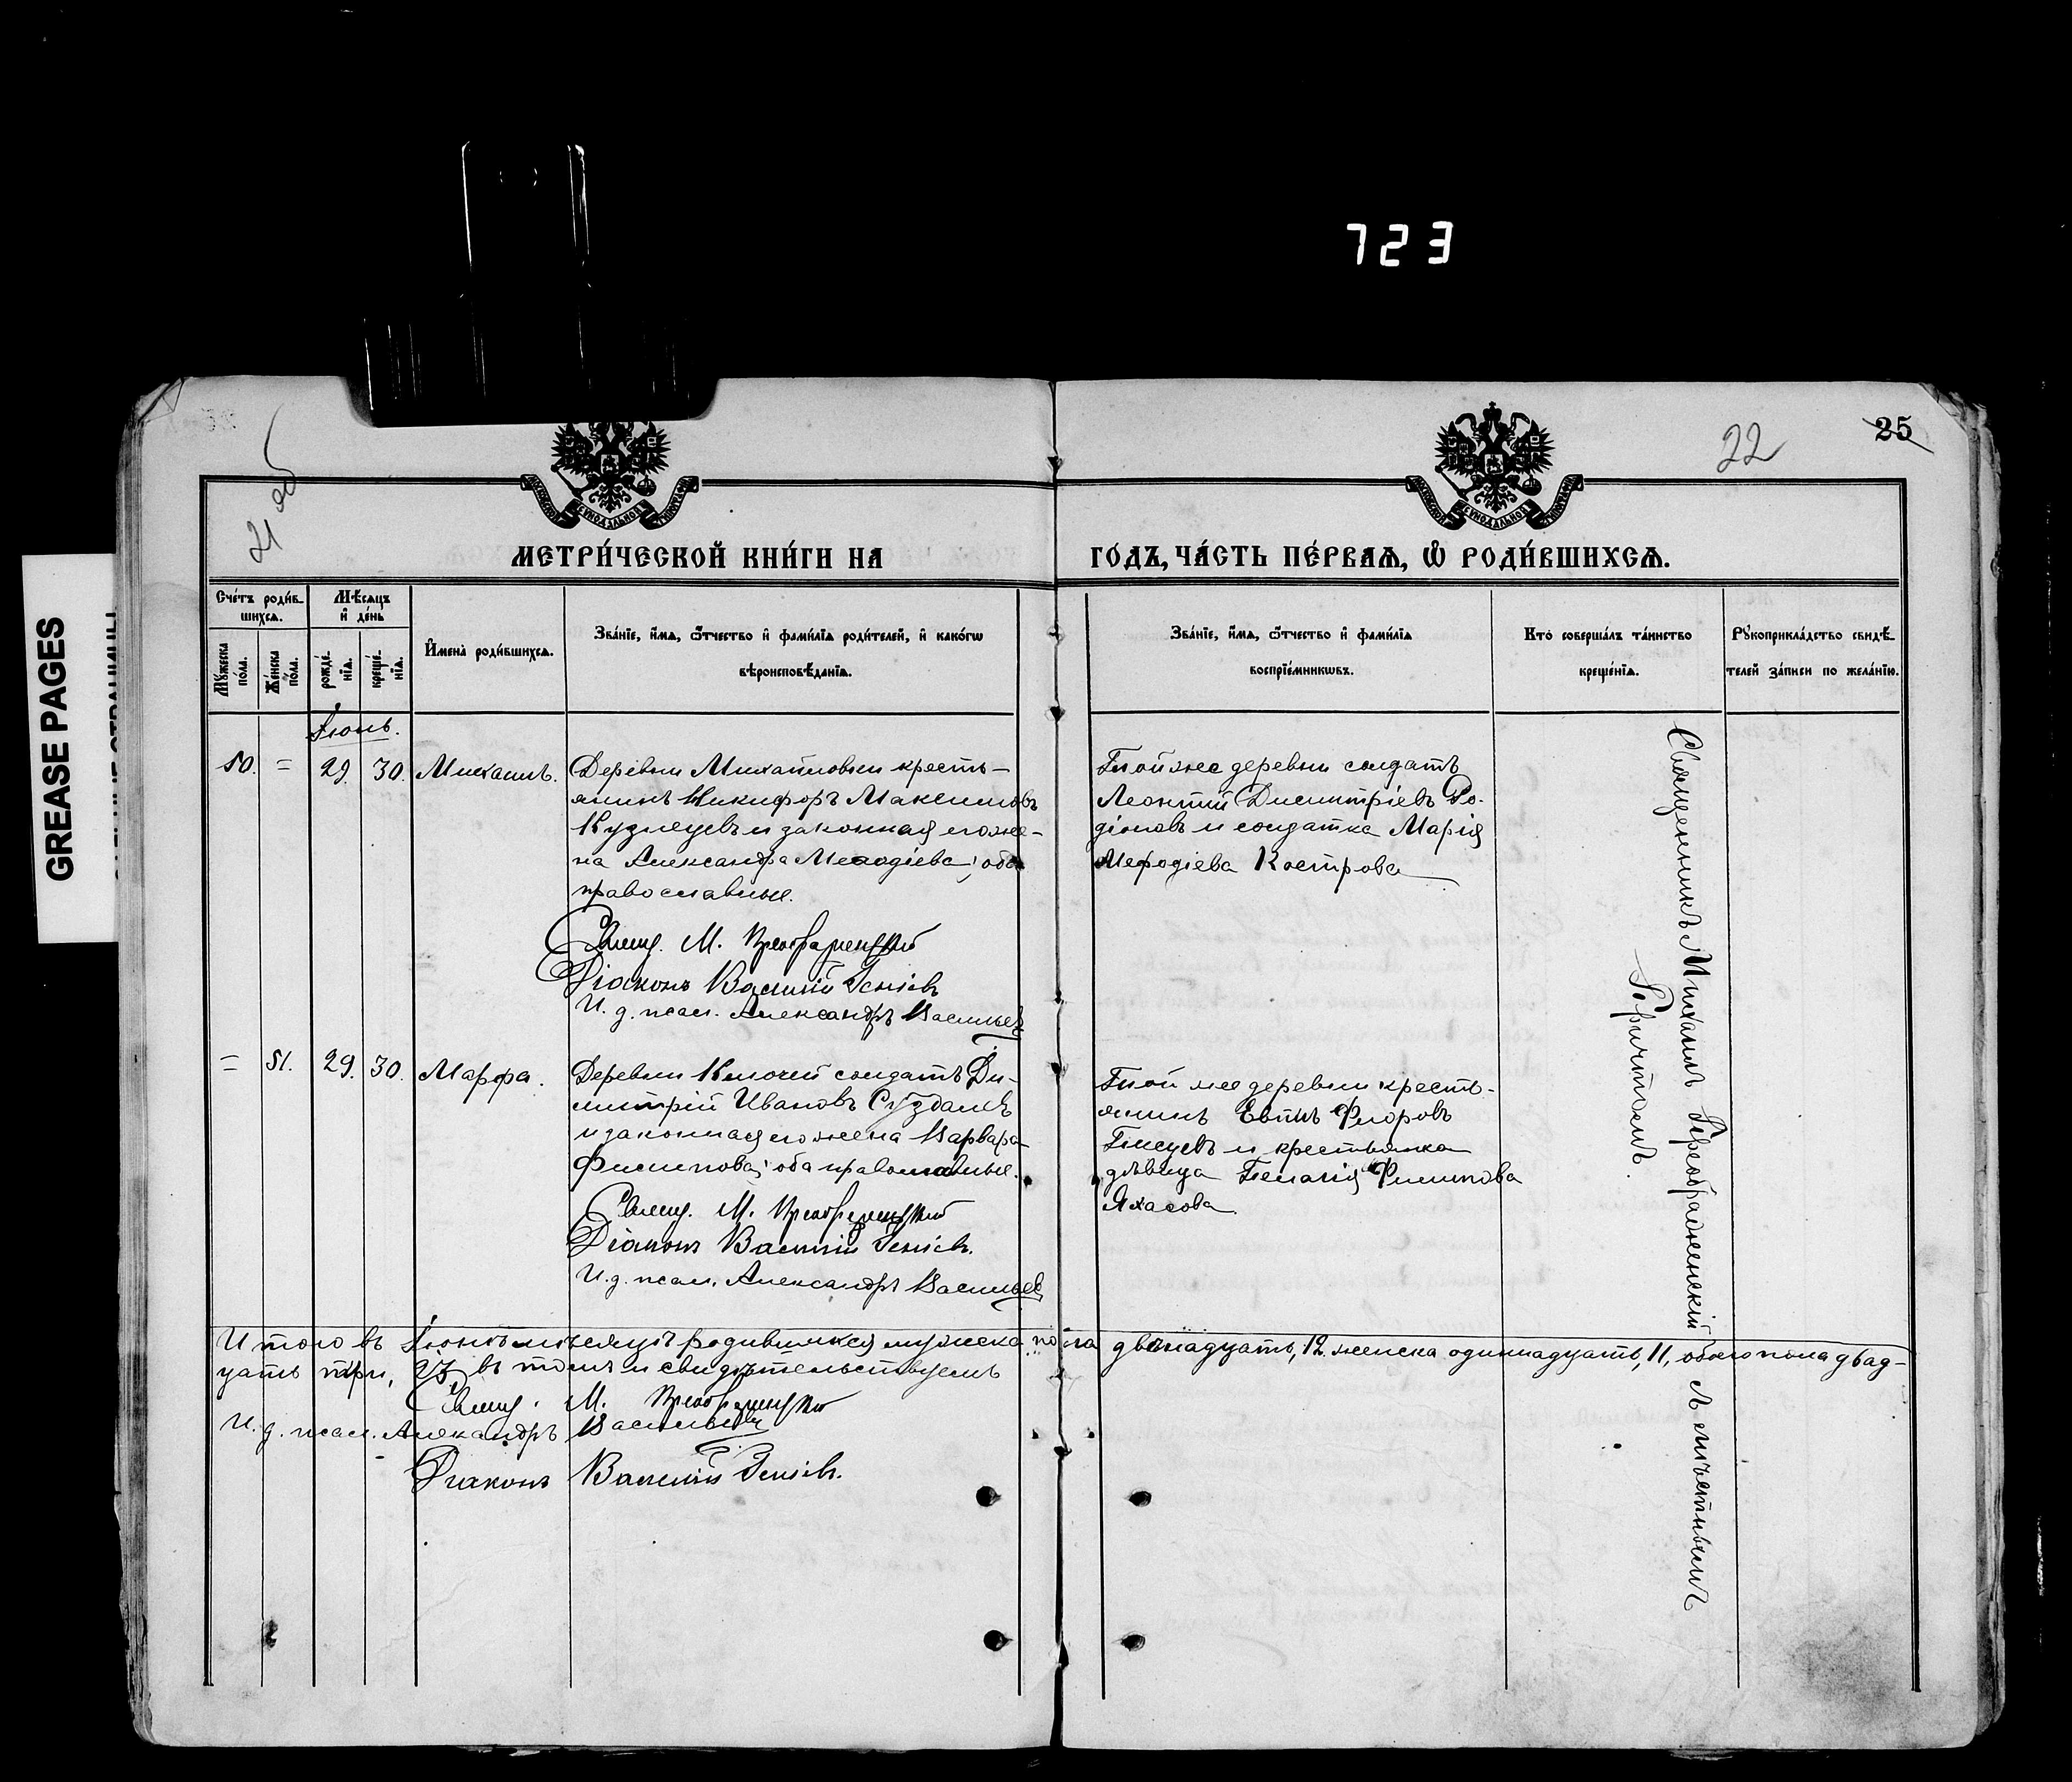 723
GREASE PAGES
21 об
22
25
МЕТРИ́ЧЕСКОЙ КНИ́ГИ НА
ГО́ДЪ, ЧА́СТЬ ПЕ́РВАѦ, Ѡ҆ РОДИ́ВШИХСѦ.
Сче́тъ роди́в-
шихсѧ.
Мꙋ́жеска
по́ла.
Же́нска
по́ла.
Мѣ́сѧцъ
и҆ де́нь
рожде́-
нїѧ.
креще́-
нїѧ.
И҆мена̀ роди́вшихсѧ.
Зва́нїе, и҆́мѧ, ѻ҆́тчество и҆ фами́лїѧ роди́телей, и҆ како́гѡ
вѣроисповѣ́данїѧ.
Зва́нїе, и҆́мѧ, ѻ҆́тчество и҆ фами́лїѧ
воспрїе́мникѡвъ.
Кто̀ соверша́лъ та́инство
креще́нїѧ.
Рꙋкоприкла́дство свидѣ́-
телей за́писи по жела́нїю.
Іюнь.
50. = 29. 30. Михаилъ.
Деревни Михайловки кресть-
янинъ Никифоръ Максимовъ
Кузнецовъ и законная его же-
на Александра Меѳодіева; оба
православные.
Свящ. М. Преображенскій
Діаконъ Василій
И. д. псал. Александръ Васильевъ
Тойже деревни солдатъ
Леонтій Димитріевъ Ро-
діоновъ и солдатка Марія
Мефодіева Кострова
= 51. 29. 30. Марфа.
Деревни Ключей солдатъ Ди-
митрій Ивановъ Суздалевъ
и законная его жена Варвара
Филиппова; оба православные.
Свящ. М. Преображенскій
Діаконъ Василій
И. д. псал. Александръ Васильевъ
Той же деревни кресть-
янинъ
и крестьянка
дѣвица Пелагія Филиппова
Священникъ Михаилъ Преображенскій съ мѣстнымъ
Причтомъ.
Итого въ Іюнѣ мѣсяцѣ родившихся мужеска пола двѣнадцать, 12. женска одиннадцать, 11, обоего пола двад-
цать три, 23, въ томъ и свидѣтельствуемъ
Свящ. М. Преображенскій
И. д. псал. Александръ Васильевъ
Діаконъ Василій